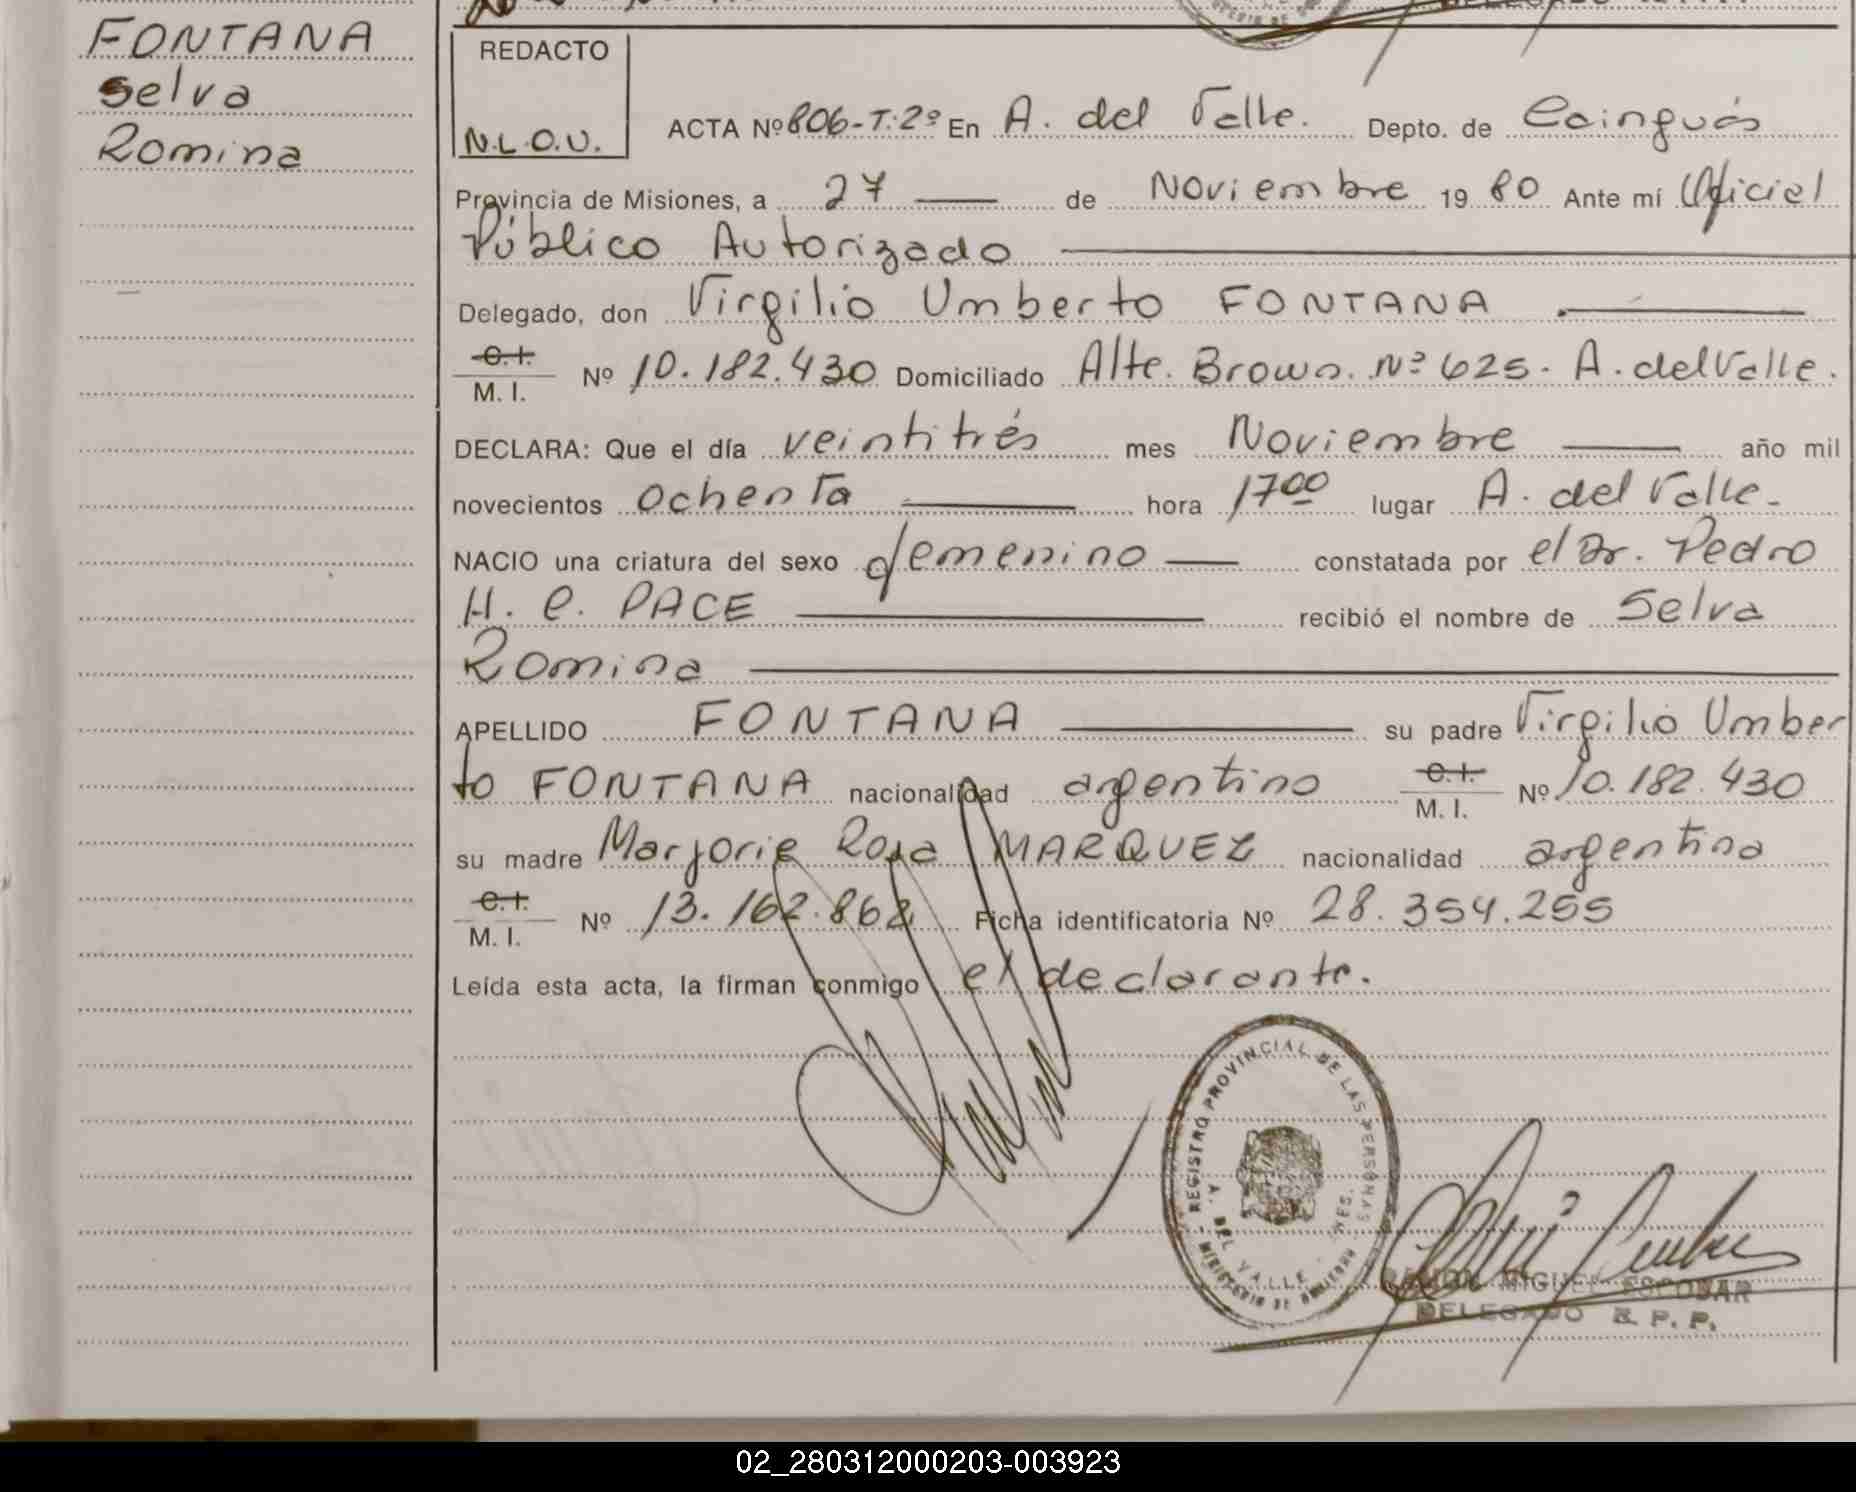 FONTANA
Selva
Romina
REDACTO
N.L.O.U.
ACTA Nº 806-T:2º En A. del Valle. Depto. de Cainguás
Provincia de Misiones, a 27 de Noviembre 1980 Ante mí Oficial
Público Autorizado
Delegado, don Virgilio Umberto FONTANA
C.I.
M. I. Nº 10.182.430 Domiciliado Alte. Brown. Nº 625. A. del Valle.
DECLARA: Que el día veintitrés mes Noviembre año mil
novecientos ochenta hora 17 00 lugar A. del Valle.
NACIO una criatura del sexo femenino constatada por el Dr. Pedro
H. C. PACE recibió el nombre de Selva
Romina
APELLIDO FONTANA su padre Virgilio Umber
to FONTANA nacionalidad argentino C.I. M. I. Nº 10.182.430
su madre Marjorie Rosa MARQUEZ nacionalidad argentina
C.I.
M. I. Nº 13.162.862 Ficha identificatoria Nº 28.354.255
Leída esta acta, la firman conmigo el declarante.
REGISTRO PROVINCIAL DE LAS PERSONAS
A. DEL VALLE - MES.
MINISTERIO DE GOBIERNO
RAMON MIGUEL ESCOBAR
DELEGADO R. P. P.
02_280312000203-003923